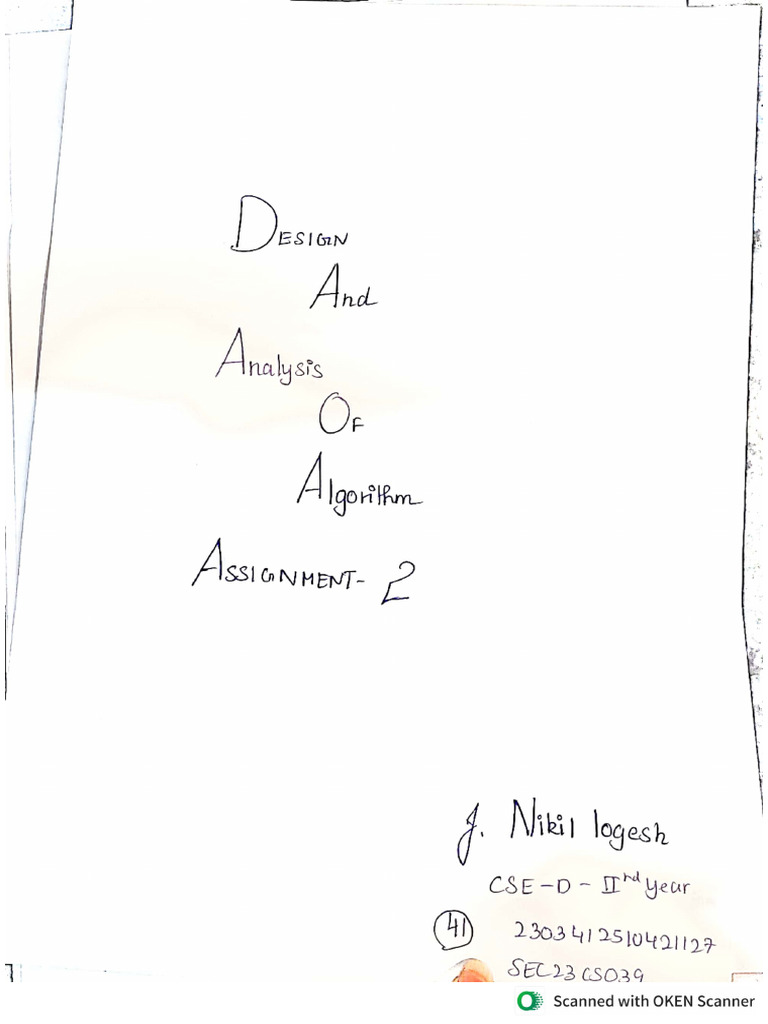 DESIGN
And
Analysis
OF
Algorithm
ASSIGNMENT- 2
J. Nikil logesh
CSE-D - II nd year
41 2303412510421127
SEC23CS039
Scanned with OKEN Scanner